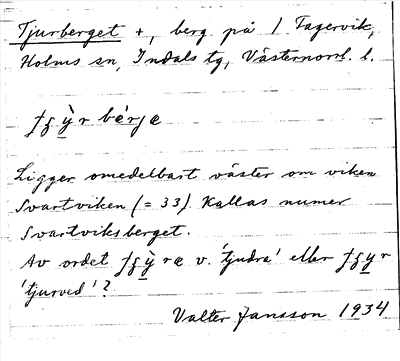 Tjurberget +, berg på 1 Tagervik,
Holms sn, Indals tg, Västernorrl. l.
Ligger omedelbart väster om viken
Svartviken (= 33). Kallas numer
Svartviksberget.
Av ordet v. 'tjudra' eller
'tjurved'?
Valter Jansson 1934